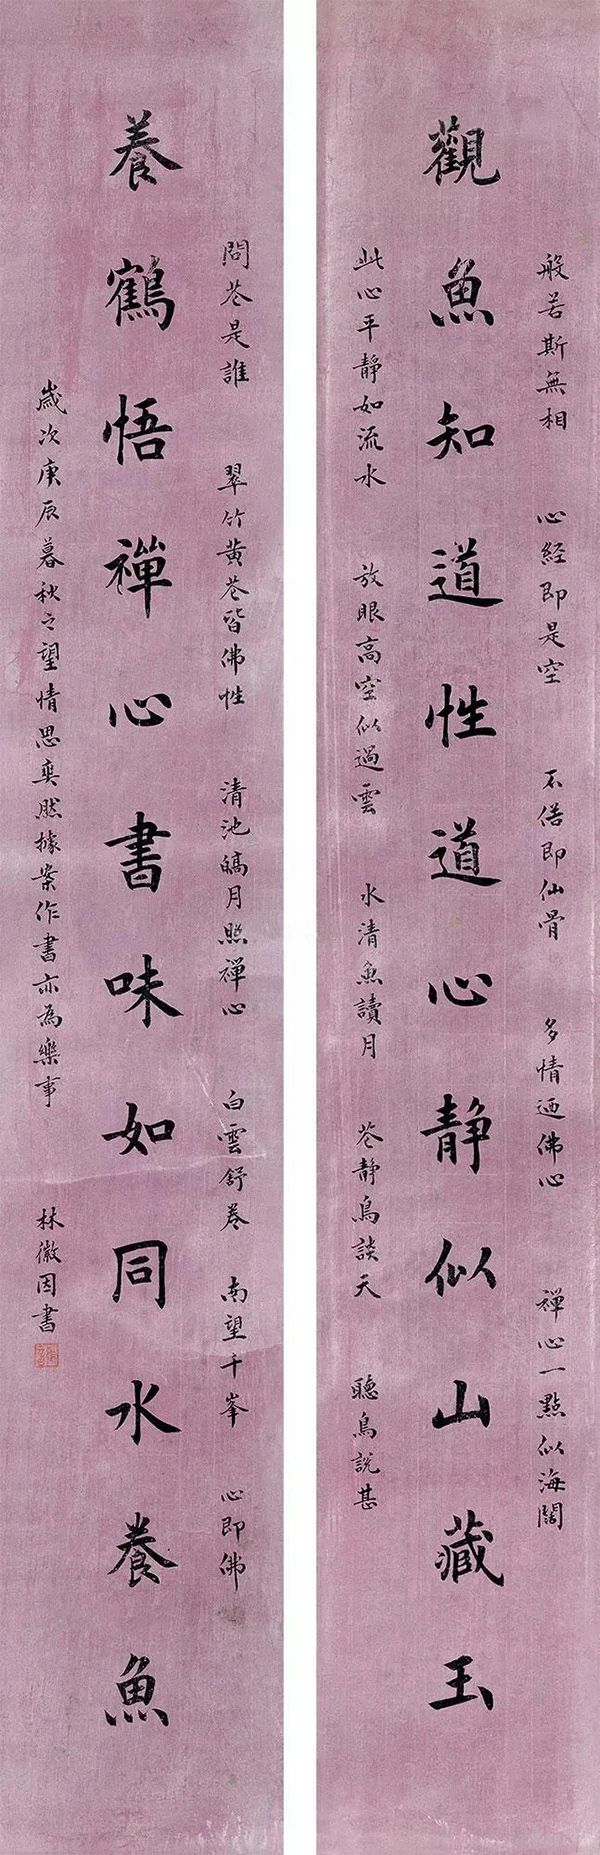 般若斯無相 心經即是空 不俗即仙骨 多情迺佛心 禪心一點似海闊
觀魚知道性道心靜似山藏玉
此心平靜如流水 放眼高空似過雲 水清魚讀月 花靜鳥談天 聽鳥說甚
問花是誰 翠竹黃花皆佛性 清池皓月照禪心 白雲舒卷 南望千峯 心即佛
養鶴悟禪心書味如同水養魚
歲次庚辰暮秋之望情思奕然據案作書亦為樂事 林徽因書